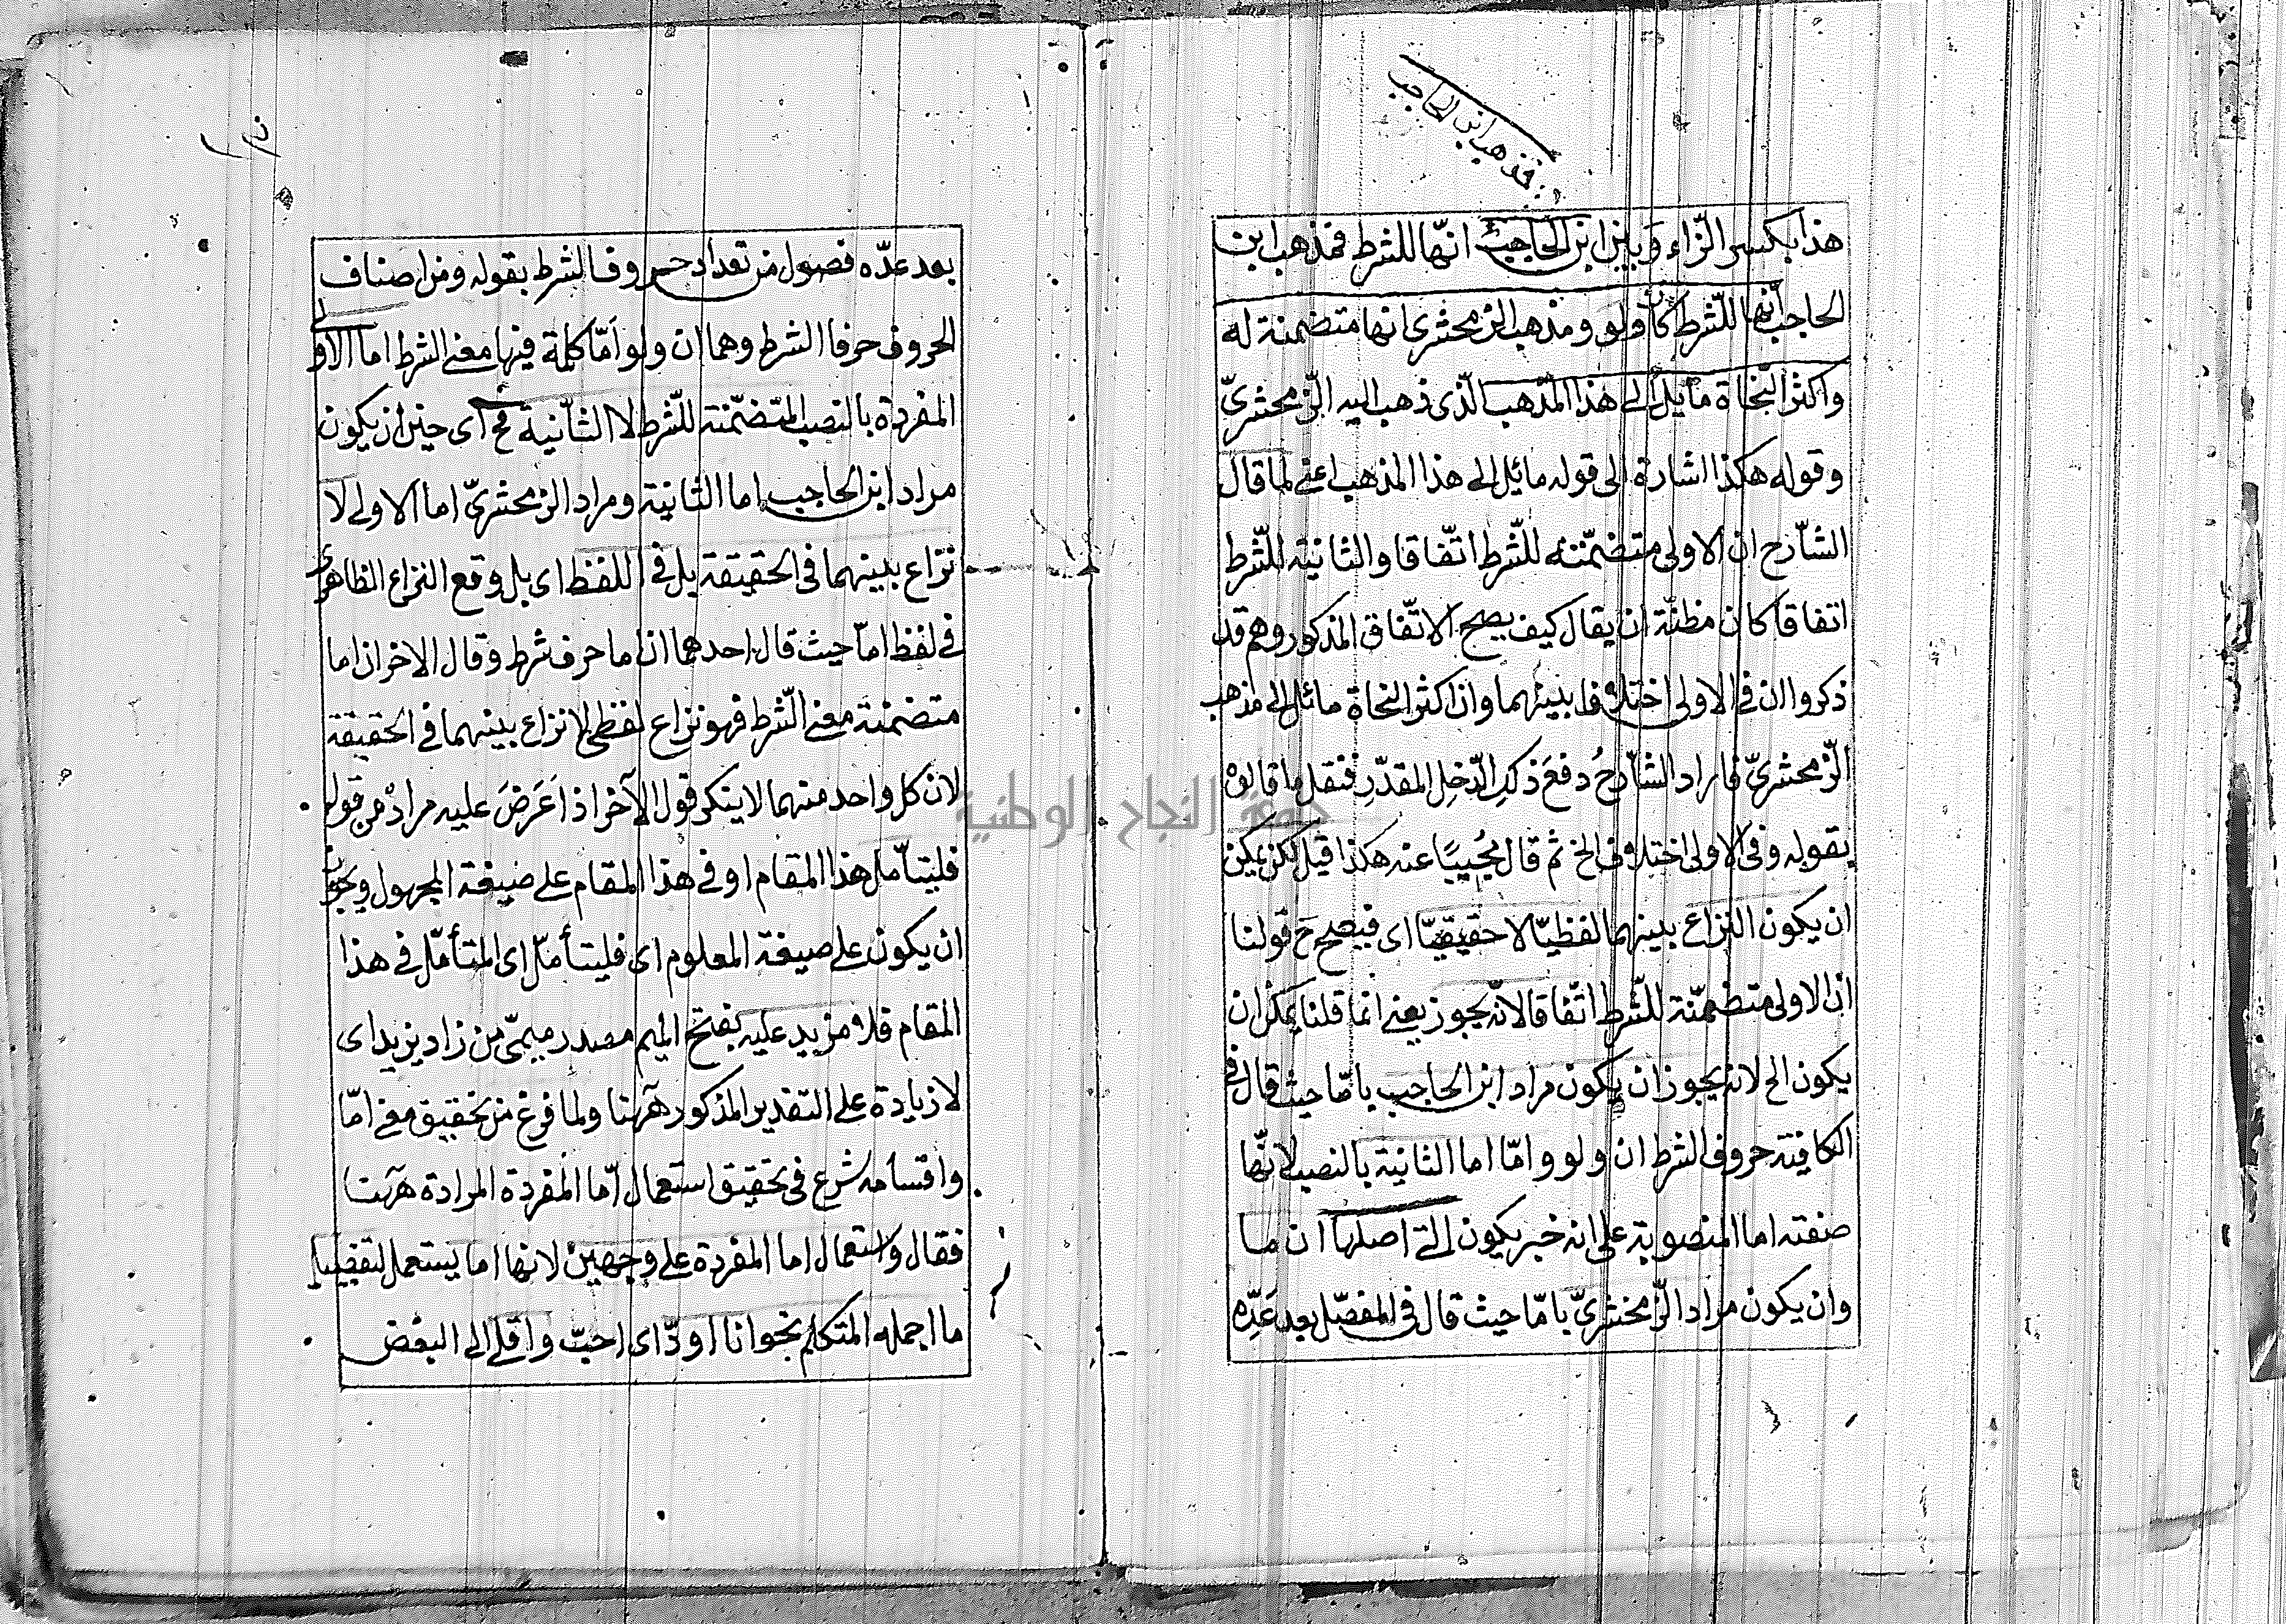 فمذهب ابن الحاجب
هذا بكسر الزّاء وبين ابن الحاجب انّها للشرط فمذهب ابن
الحاجب أنّها للشّرط كأن ولو ومذهب الزمحشرى انها متضمنة له
واكثر النّحاة مايل الى هذا المذهب الّذى ذهب اليه الزّمحشرىّ
وقوله هكذا اشارة الى قوله مائل الى هذا المذهب اعنى لما قال
الشّارح ان الاولى متضمّنة للشّرط اتّفاقا والثانية للشّرط
اتفاقا كان مظنّة ان يقال كيف يصح الاتّفاق المذكور وهم قد
ذكروا ان فى الاولى اختلافا بينهما وان اكثر النحاة مائل الى مذهب
الزّمحشرىّ فاراد الشّارحُ دفعَ ذكِ الدّخلِ المقدّرِ فنقل ما قالوه
بقوله وفى الاولى اختلاف الخ ثم قال مُجيبًا عنه هكذا قيل لكن يمكن
ان يكون النزاع بينهما لفظيّا لا حقيقيّا اى فيصح ح قولنا
ان الاولى متضمّنة للشّرط اتّفاقا لانّه يجوز يعنى انما قلنا يمكن ان
يكون الخ لانه يجوز ان يكون مراد ابن الحاجب بامّا حيث قال فى
الكافيته حروف الشرط ان ولو وامّا اما الثانية بالنصب لانّها
صفته اما المنصوبة على انه خبر يكون التى اصلها ان ما
وان يكون مراد الزّمخشرىّ بامّا حيث قال فى المفصّل بعد عَدّه
بعد عدّه فصول من تعداد حروف الشرط بقوله ومن اصناف
الحروف حرفا الشرط وهما ان ولو امّا كلمة فيها معنى الشرط اما الاولى
المفردة بالنصب المتضمّنة للشّرط لا الثّانية فح أى حين ان يكون
مراد ابن الحاجب اما الثانية ومراد الزمحشرىّ اما الاولى لا
نزاع بينهما فى الحقيقة بل فى اللفظ اى بل وقع النزاع الظاهرى
فى لفظ امّا حيث قال احدهما ان اما حرف شرط وقال الاخر ان اما
متضمنة معنى الشّرط فهو نزاع لفظى لا نزاع بينهما فى الحقيقة
لان كل واحد منهما لا ينكر قول الآخر اذا عَرَضَ عليه مراده من قوله
فليتأمّل هذا المقام او فى هذا المقام على صيغة المجهول ويجوز
ان يكون على صيغة المعلوم اى فليتأمّل اى المتأمّل فى هذا
المقام فلا مزيد عليه بفتح الميم مصدر ميمىّ من زاد يزيد اى
لا زيادة على التقدير المذكور ههنا ولما فرغ من تحقيق معنى امّا
واقسامه شرع فى تحقيق استعمال امّا المفردة المرادة ههنا
فقال واستعمال اما المفردة على وجهين لانها اما يستعمل لتفصيل
ما اجمله المتكلم نحو انا اودّ اى احبّ واقلى الى البغض
جامعة النجاح الوطنية